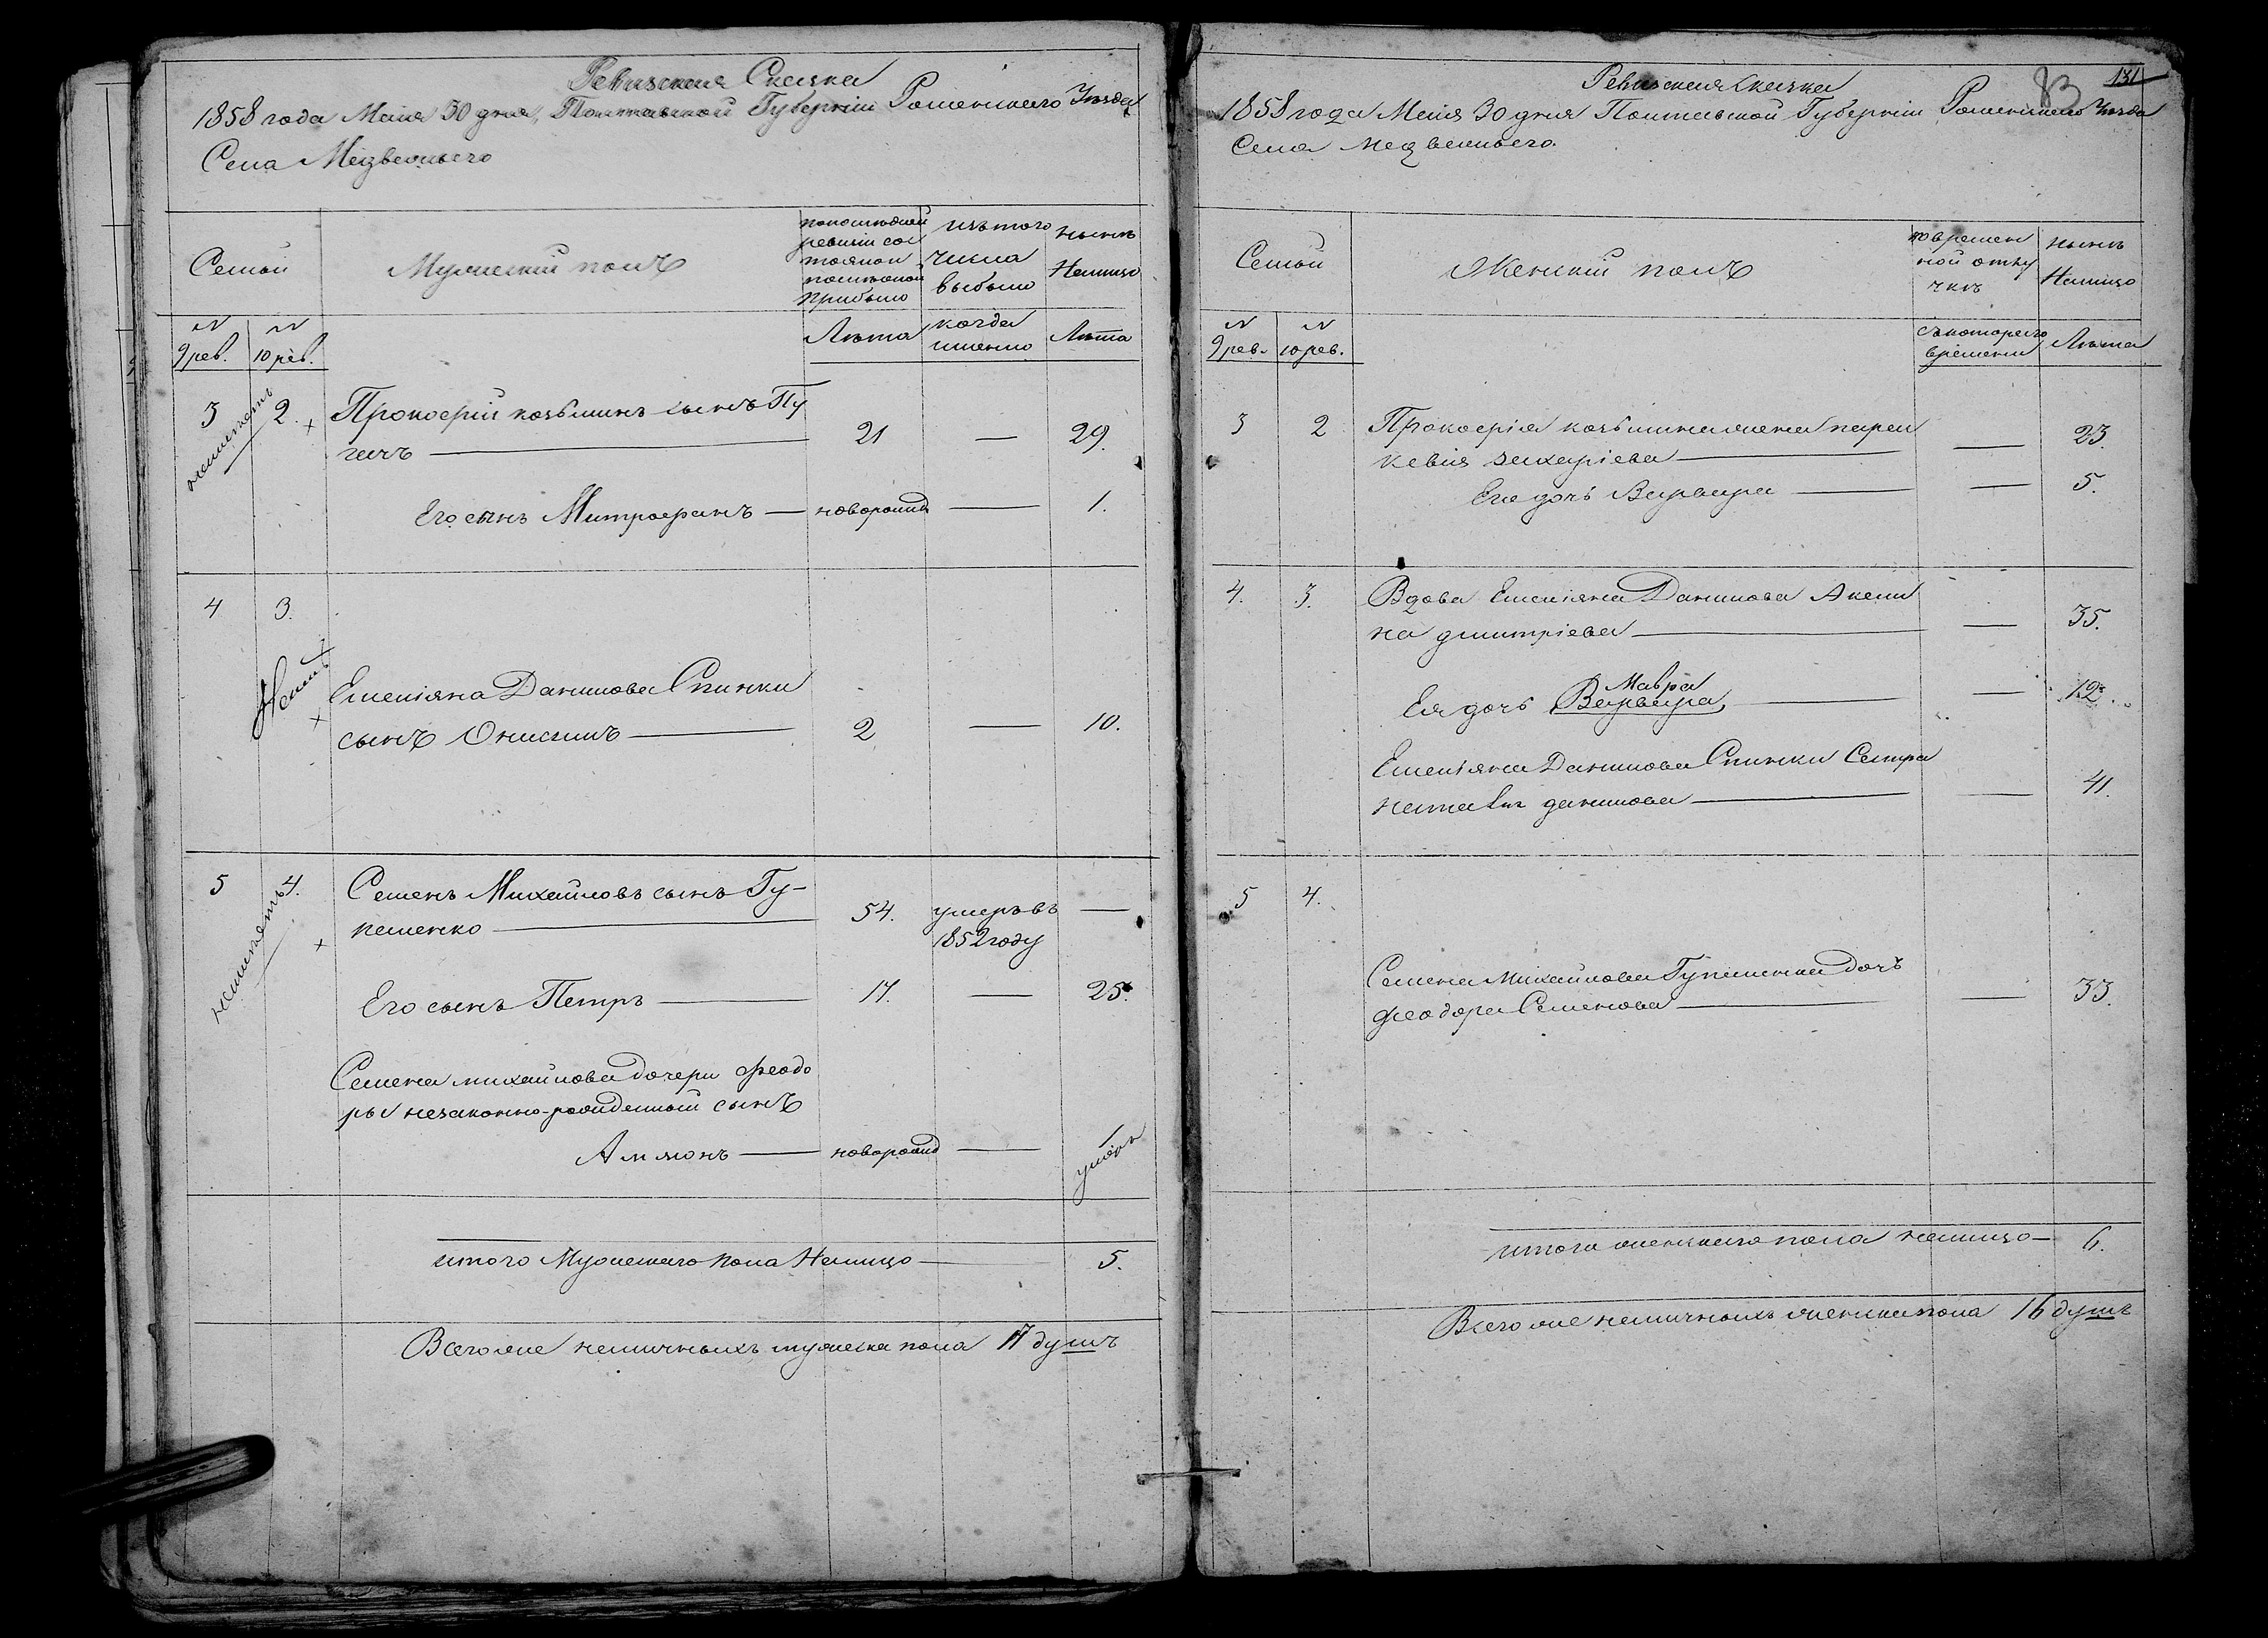 Ревизская Сказка
1858 года Маія 30 дня, Полтавской Губерніи Роменскаго Уезда
Села Медвежьего
Семьи
Мужескій полъ
по последней ревизіи состояло и после оной прибыло
изъ того числа выбыло
ныне Налицо
N 9 рев.
N 10 рев.
Лета
когда именно
Лета
3 2. Прокофій козьминъ сынъ Пу
гачъ — 21 — 29.
Его сынъ Митрофанъ — новорожд — 1.
4 3.
Емеліяна Данилова Спинки
сынъ Онисимъ — 2 — 10.
5 4. Семенъ Михайловъ сынъ Гу-
паленко — 54. умеръ въ —
1852 году
Его сынъ Петръ — 17. — 25.
Семена михайлова дочери Феодо
ры незаконно-рожденный сынъ
Аммонъ — новорожд — 1
умеръ
итого Мужескаго пола Налицо — 5.
Всего же наличныхъ мужеска пола 17 душъ
83
131
Ревизская сказка
1858 года Маія 30 дня Полтавской Губерніи Роменскаго Уезда
Села Медвежьего.
Семьи
Женскій полъ
во времен
ной отлу
чке
ныне
Налицо
N 9 рев.
N 10 рев.
съ котораго
времени
Лета
3 2 Прокофія козьмина жена парас
кевія захаріева — — 23.
Его дочь Варвара — — 5.
4. 3. Вдова Емеліяна Данилова Акели
на дмитріева — — 35.
Мавра
Ея дочь Варвара — — 12.
Емеліяна Данилова Спинки Сестра
наталія данилова — — 41.
5 4.
Семена Михайлова Гупаленка дочь
феодора Семенова — — 33.
итого женскаго пола налицо — 6.
Всего же наличныхъ женска пола 16 душъ